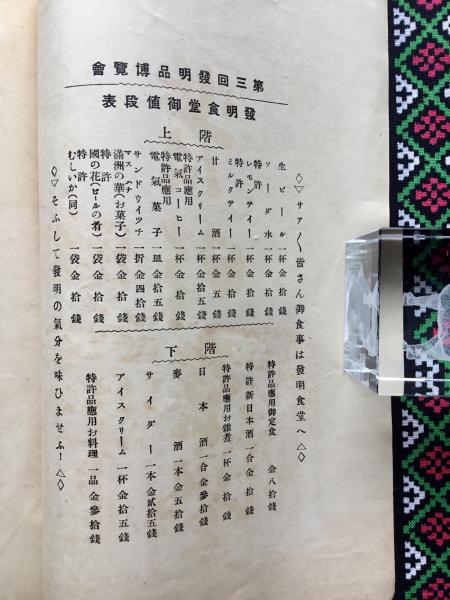 第三回發明品博覽會
發明食堂御値段表
◇▽サァ〱皆さん御食事は發明食堂へ△◇
階上
生ビール 一杯金拾錢
ソーダ水 一杯金拾錢
特許
レモンティー 一杯金拾錢
特許
ミルクティー 一杯金拾錢
甘酒 一杯金五錢
アイスクリーム 一杯金拾五錢
特許品應用
電氣コーヒー 一杯金拾錢
特許品應用
電氣菓子 一皿金拾五錢
サンドウイッチ 一折金四拾錢
滿洲の華(お菓子) 一袋金拾錢
特許
國の花(ビールの肴) 一袋金拾錢
特許
むしいか(同) 一袋金拾錢
階下
特許品應用御定食 金八拾錢
特許新日本酒 一合金拾錢
特許品應用お雜煮 一杯金拾錢
日本酒 一合金參拾錢
麥酒 一本金五拾錢
サイダー 一本金貳拾五錢
アイスクリーム 一杯金拾五錢
特許品應用お料理 一品金參拾錢
◇▽そふして發明の氣分を味ひませふ!△◇